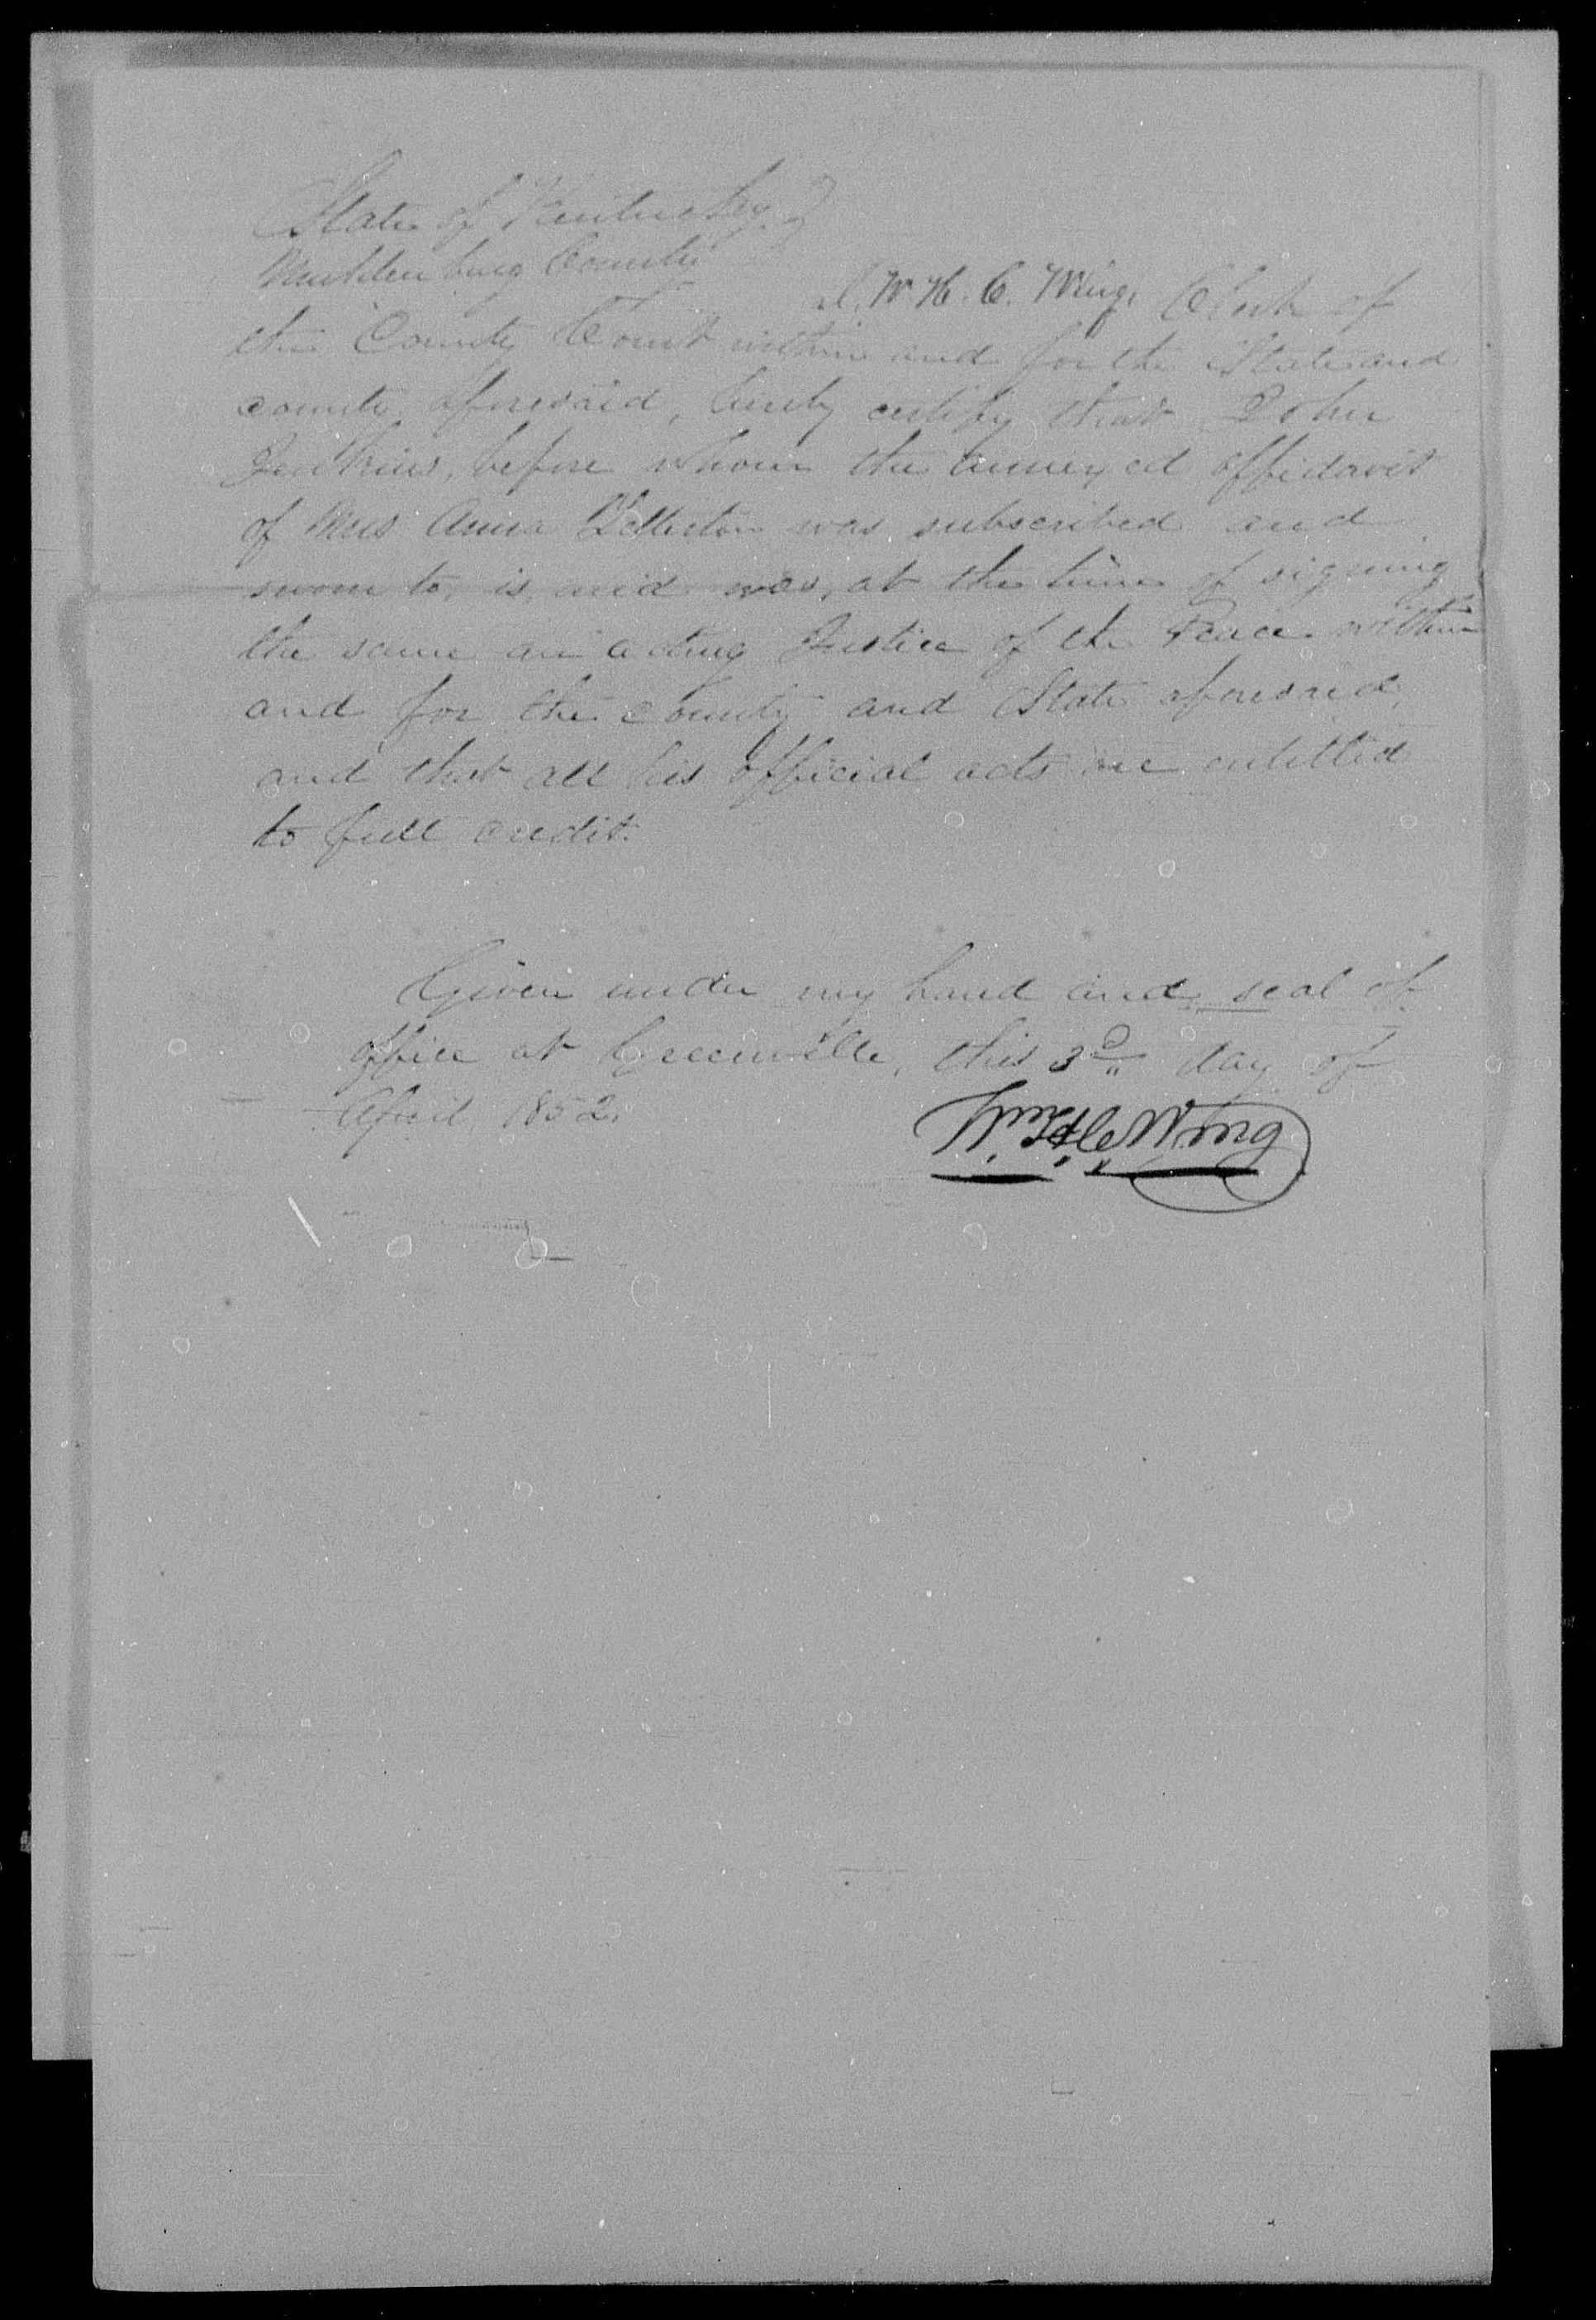 State of Kentucky }
Muhlenburg County
I, W. H. C. Wing, Clerk of
the County Court within and for the State and
county aforesaid, hereby certify that John
Jenkins, before whom the annexed affidavit
of Mrs Anna was subscribed and
sworn to, is, and was, at the time of signing
the same an acting Justice of the Peace within
and for the county and State aforesaid,
and that all his official acts are entitled
to full credit.
Given under my hand and seal of
office at Greenville, this 3d day of
April 1852.
W. H. C. Wing